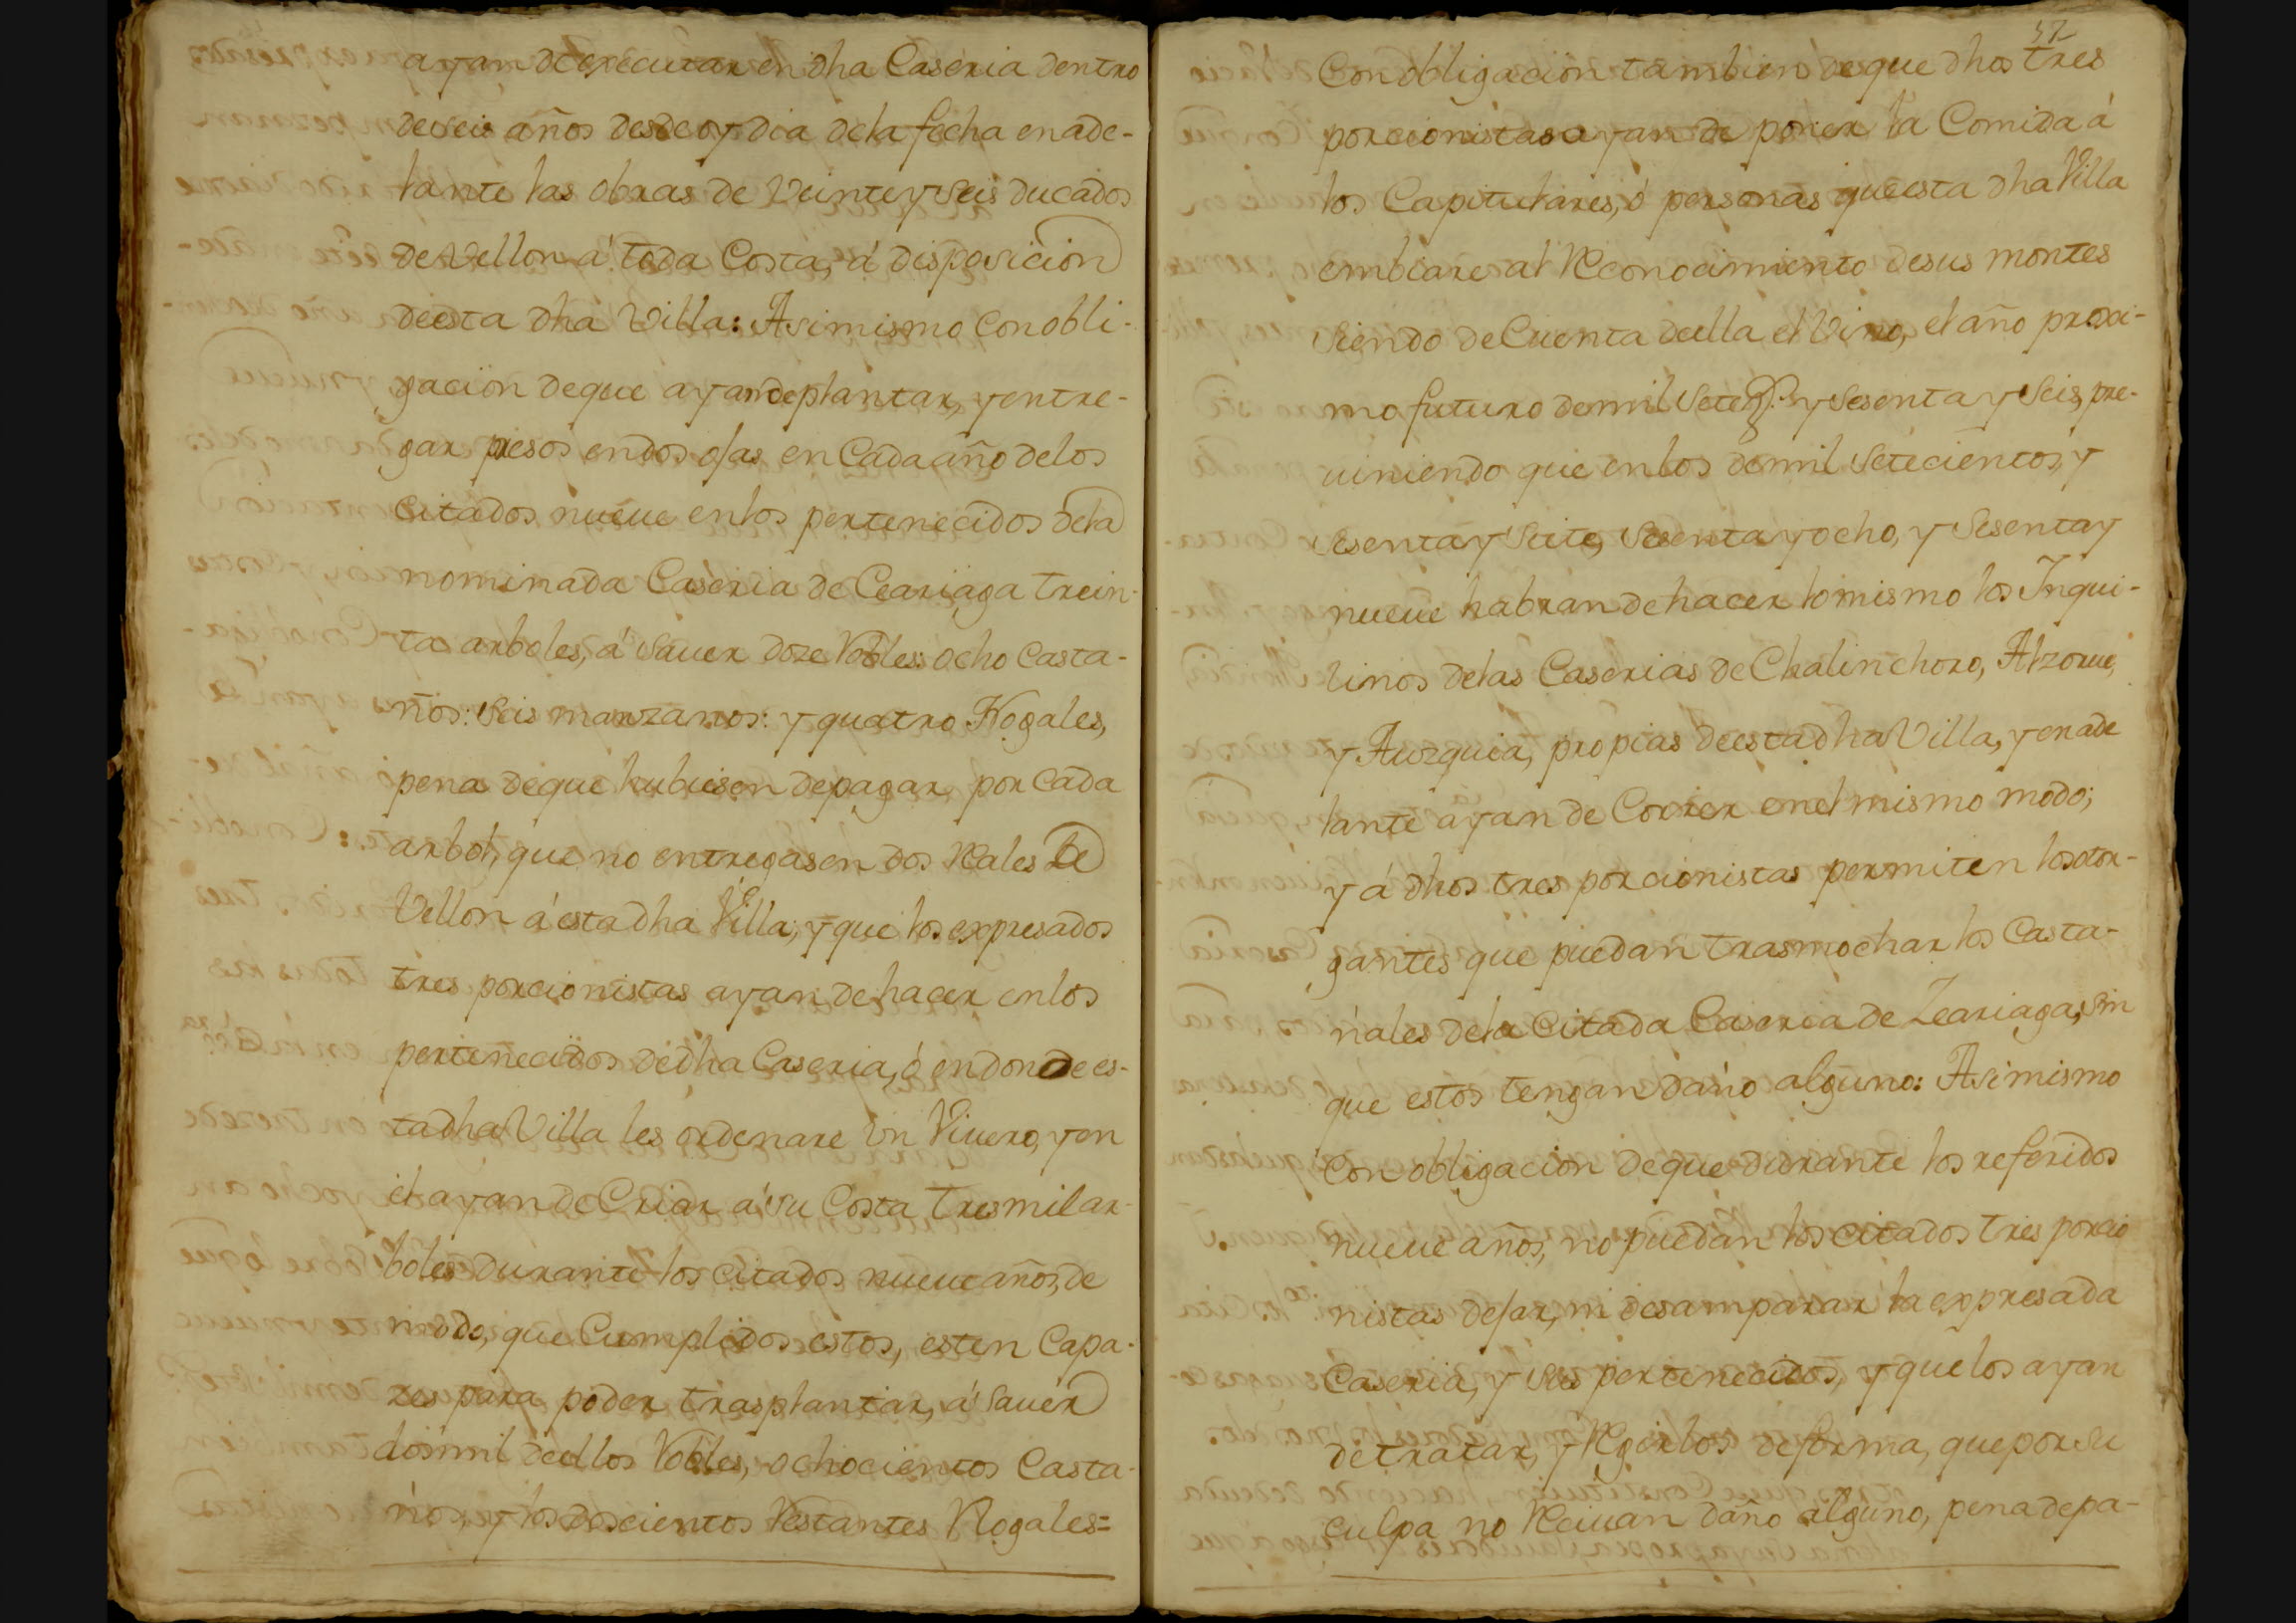 ayan de executar en dha Caseria dentro
de seis años desde oy dia dela fecha en ade-
lante las obras de Veinte y seis ducados
de Vellon á toda Costa, á disposicion
de esta dha Villa: Asimismo con obli-
gacion de que ayan de plantar, y entre-
gar presos en dos ojas en Cada año delos
citados nueue en los pertenecidos dela
nominada Caseria de Ceariaga trein-
ta arboles, á sauer doze Robles: ocho Casta-
ños: seis manzanos: y quatro Nogales,
pena de que hubiesen de pagar por Cada
arbol, que no entregasen dos Reales de
Vellon á esta dha Villa; y que los expresados
tres porcionistas ayan de hacer en los
pertenecidos de dha Caseria, ó en donde es-
ta dha Villa les ordenare Vn Viuero, y en
él ayan de Criar á su Costa tres mil ar-
boles durante los citados nueue años, de
modo, que Cumplidos estos, esten Capa-
zes para poder trasplantar, á sauer
dos mil de ellos Robles, ochocientos Casta-
ños, y los doscientos Restantes Nogales=
57
Con obligacion tambien de que dhos tres
porcionistas ayan de poner la Comida á
los Capitulares, ó personas que esta dha Villa
embiare al Reconocimiento de sus montes
siendo de Cuenta de ella el Vino, el año proxi-
mo futuro de mil setezs. y sesenta y seis, pre-
uiniendo que en los de mil setecientos, y
sesenta y siete, sesenta y ocho, y sesenta y
nueue habran de hacer lo mismo los Inqui-
linos delas Caserias de Chalinchoro, Alzorue,
y Auzquia, propias de esta dha Villa, y en ade
lante ayan de Correr en el mismo modo;
y á dhos tres porcionistas permiten los otor-
gantes que puedan trasmochar los Casta-
ñales dela Citada Caseria de Zeariaga, sin
que estos tengan daño alguno: Asimismo
con obligacion de que durante los referidos
nueue años, no puedan los citados tres porcio
nistas dejar, ni desamparar la expresada
Caseria, y sus pertenecidos, y que los ayan
de tratar, y Regirlos de forma, que por su
culpa no Reciuan daño alguno, pena de pa-